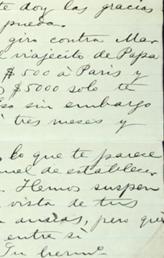 te doy las gracias
prueba.
giro contra Mar
viajecito de Papa
$500 a Paris y
$5000 solo te
sin embargo
tres meses y
lo que te parece
de establecer
Hemos suspen
vista de tus
pero que
entre si
Tu herm°